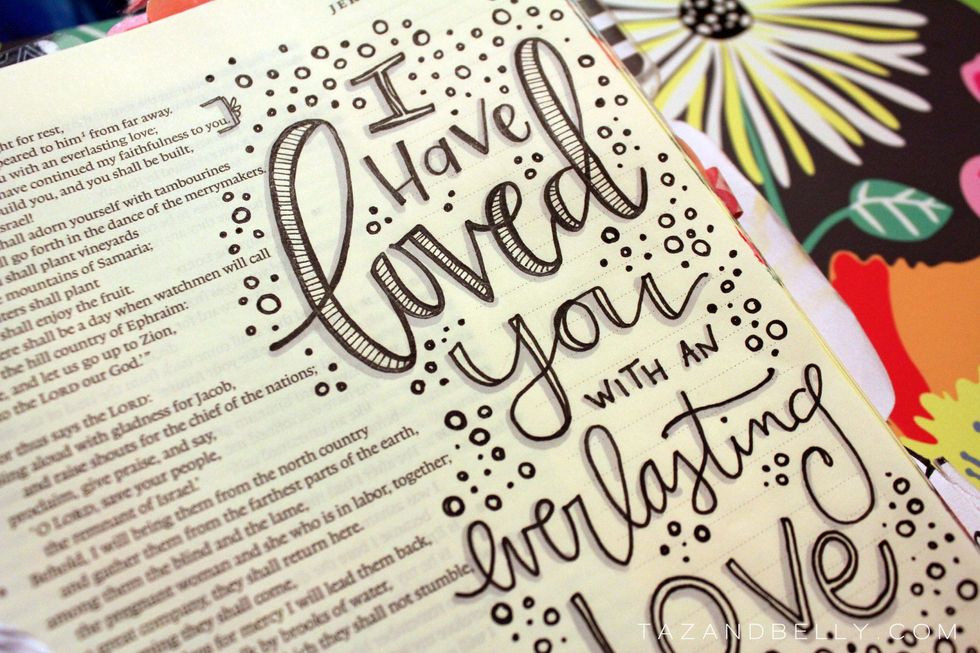 JER
ht for rest,
peared to him² from far away.
u with an everlasting love;
have continued my faithfulness to you.
uild you, and you shall be built,
srael!
hall adorn yourself with tambourines
ll go forth in the dance of the merrymakers.
shall plant vineyards
mountains of Samaria;
ters shall plant
shall enjoy the fruit.
ere shall be a day when watchmen will call
the hill country of Ephraim:
e, and let us go up to Zion,
o the LORD our God.'"
or thus says the LORD:
ng aloud with gladness for Jacob,
and raise shouts for the chief of the nations;
proclaim, give praise, and say,
'O LORD, save your people,
the remnant of Israel.'
Behold, I will bring them from the north country
and gather them from the farthest parts of the earth,
among them the blind and the lame,
the pregnant woman and she who is in labor, together;
great company, they shall return here.
ing they shall come,
mercy I will lead them back,
by brooks of water,
ich they shall not stumble,
I
Have
loved
you
WITH AN
everlasting
Love
TAZANDBELLY.COM